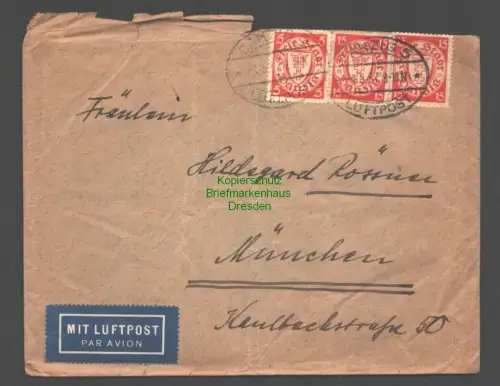 15 15 15
DANZIG 5
LUFTPOST
Fräulein
Hildegard Rössner
Kopierschutz
Briefmarkenhaus
Dresden
München
Kaulbachstraße 50
MIT LUFTPOST
PAR AVION